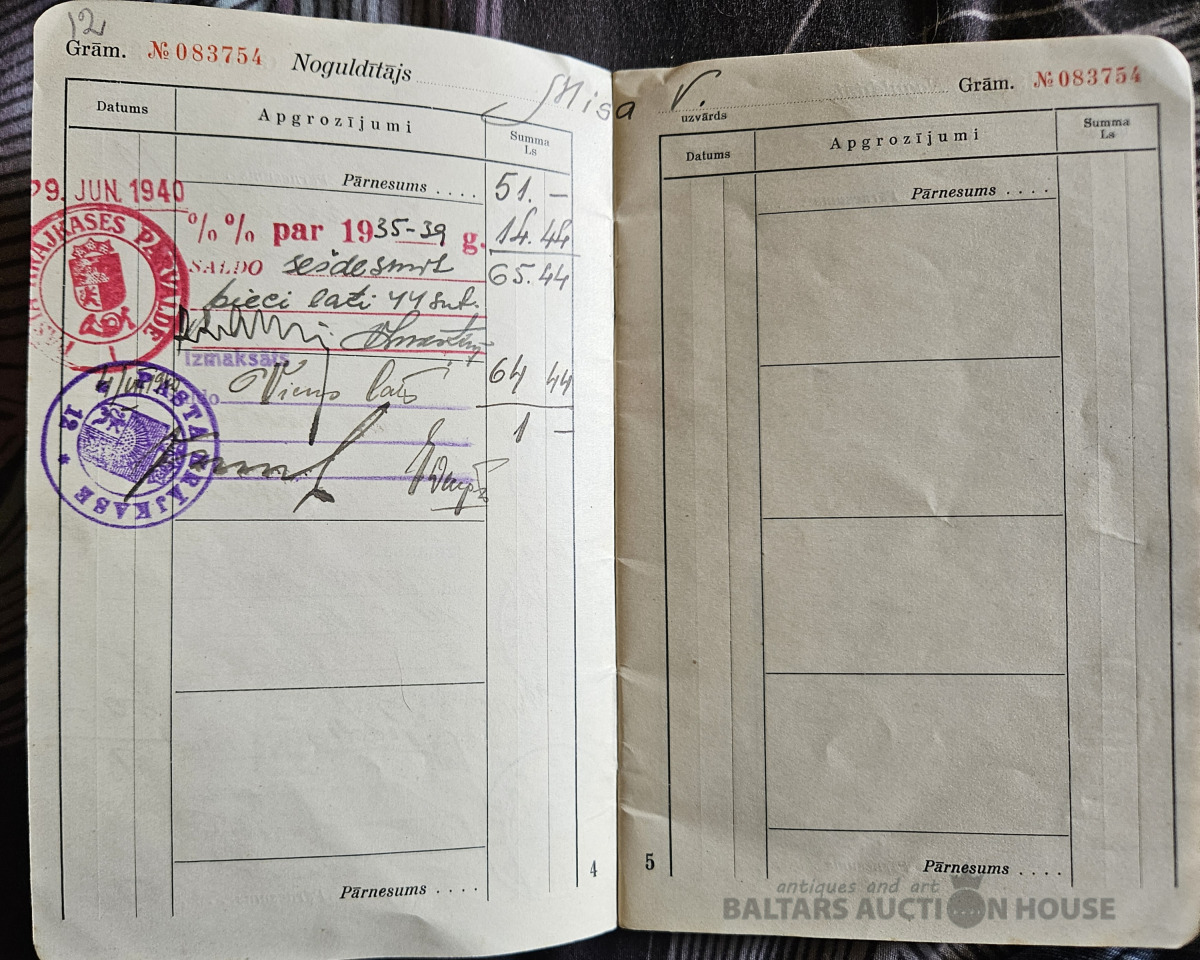 12
Grām. № 083754 Noguldītājs
Misa V.
Datums Apgrozījumi Summa Ls
Pārnesums . . . . 51. –
29. JUN. 1940
%% par 1935-39 g. 14.44
SALDO sešdesmit 65.44
pieci lati 44 snt.
Izmaksāts 64 44
Viens lats
1 –
PASTA KRĀJKASE
12
Pārnesums . . . .
4
uzvārds Grām. № 083754
Datums Apgrozījumi Summa Ls
Pārnesums . . . .
Pārnesums . . . .
5
antiques and art
BALTARS AUCTION HOUSE